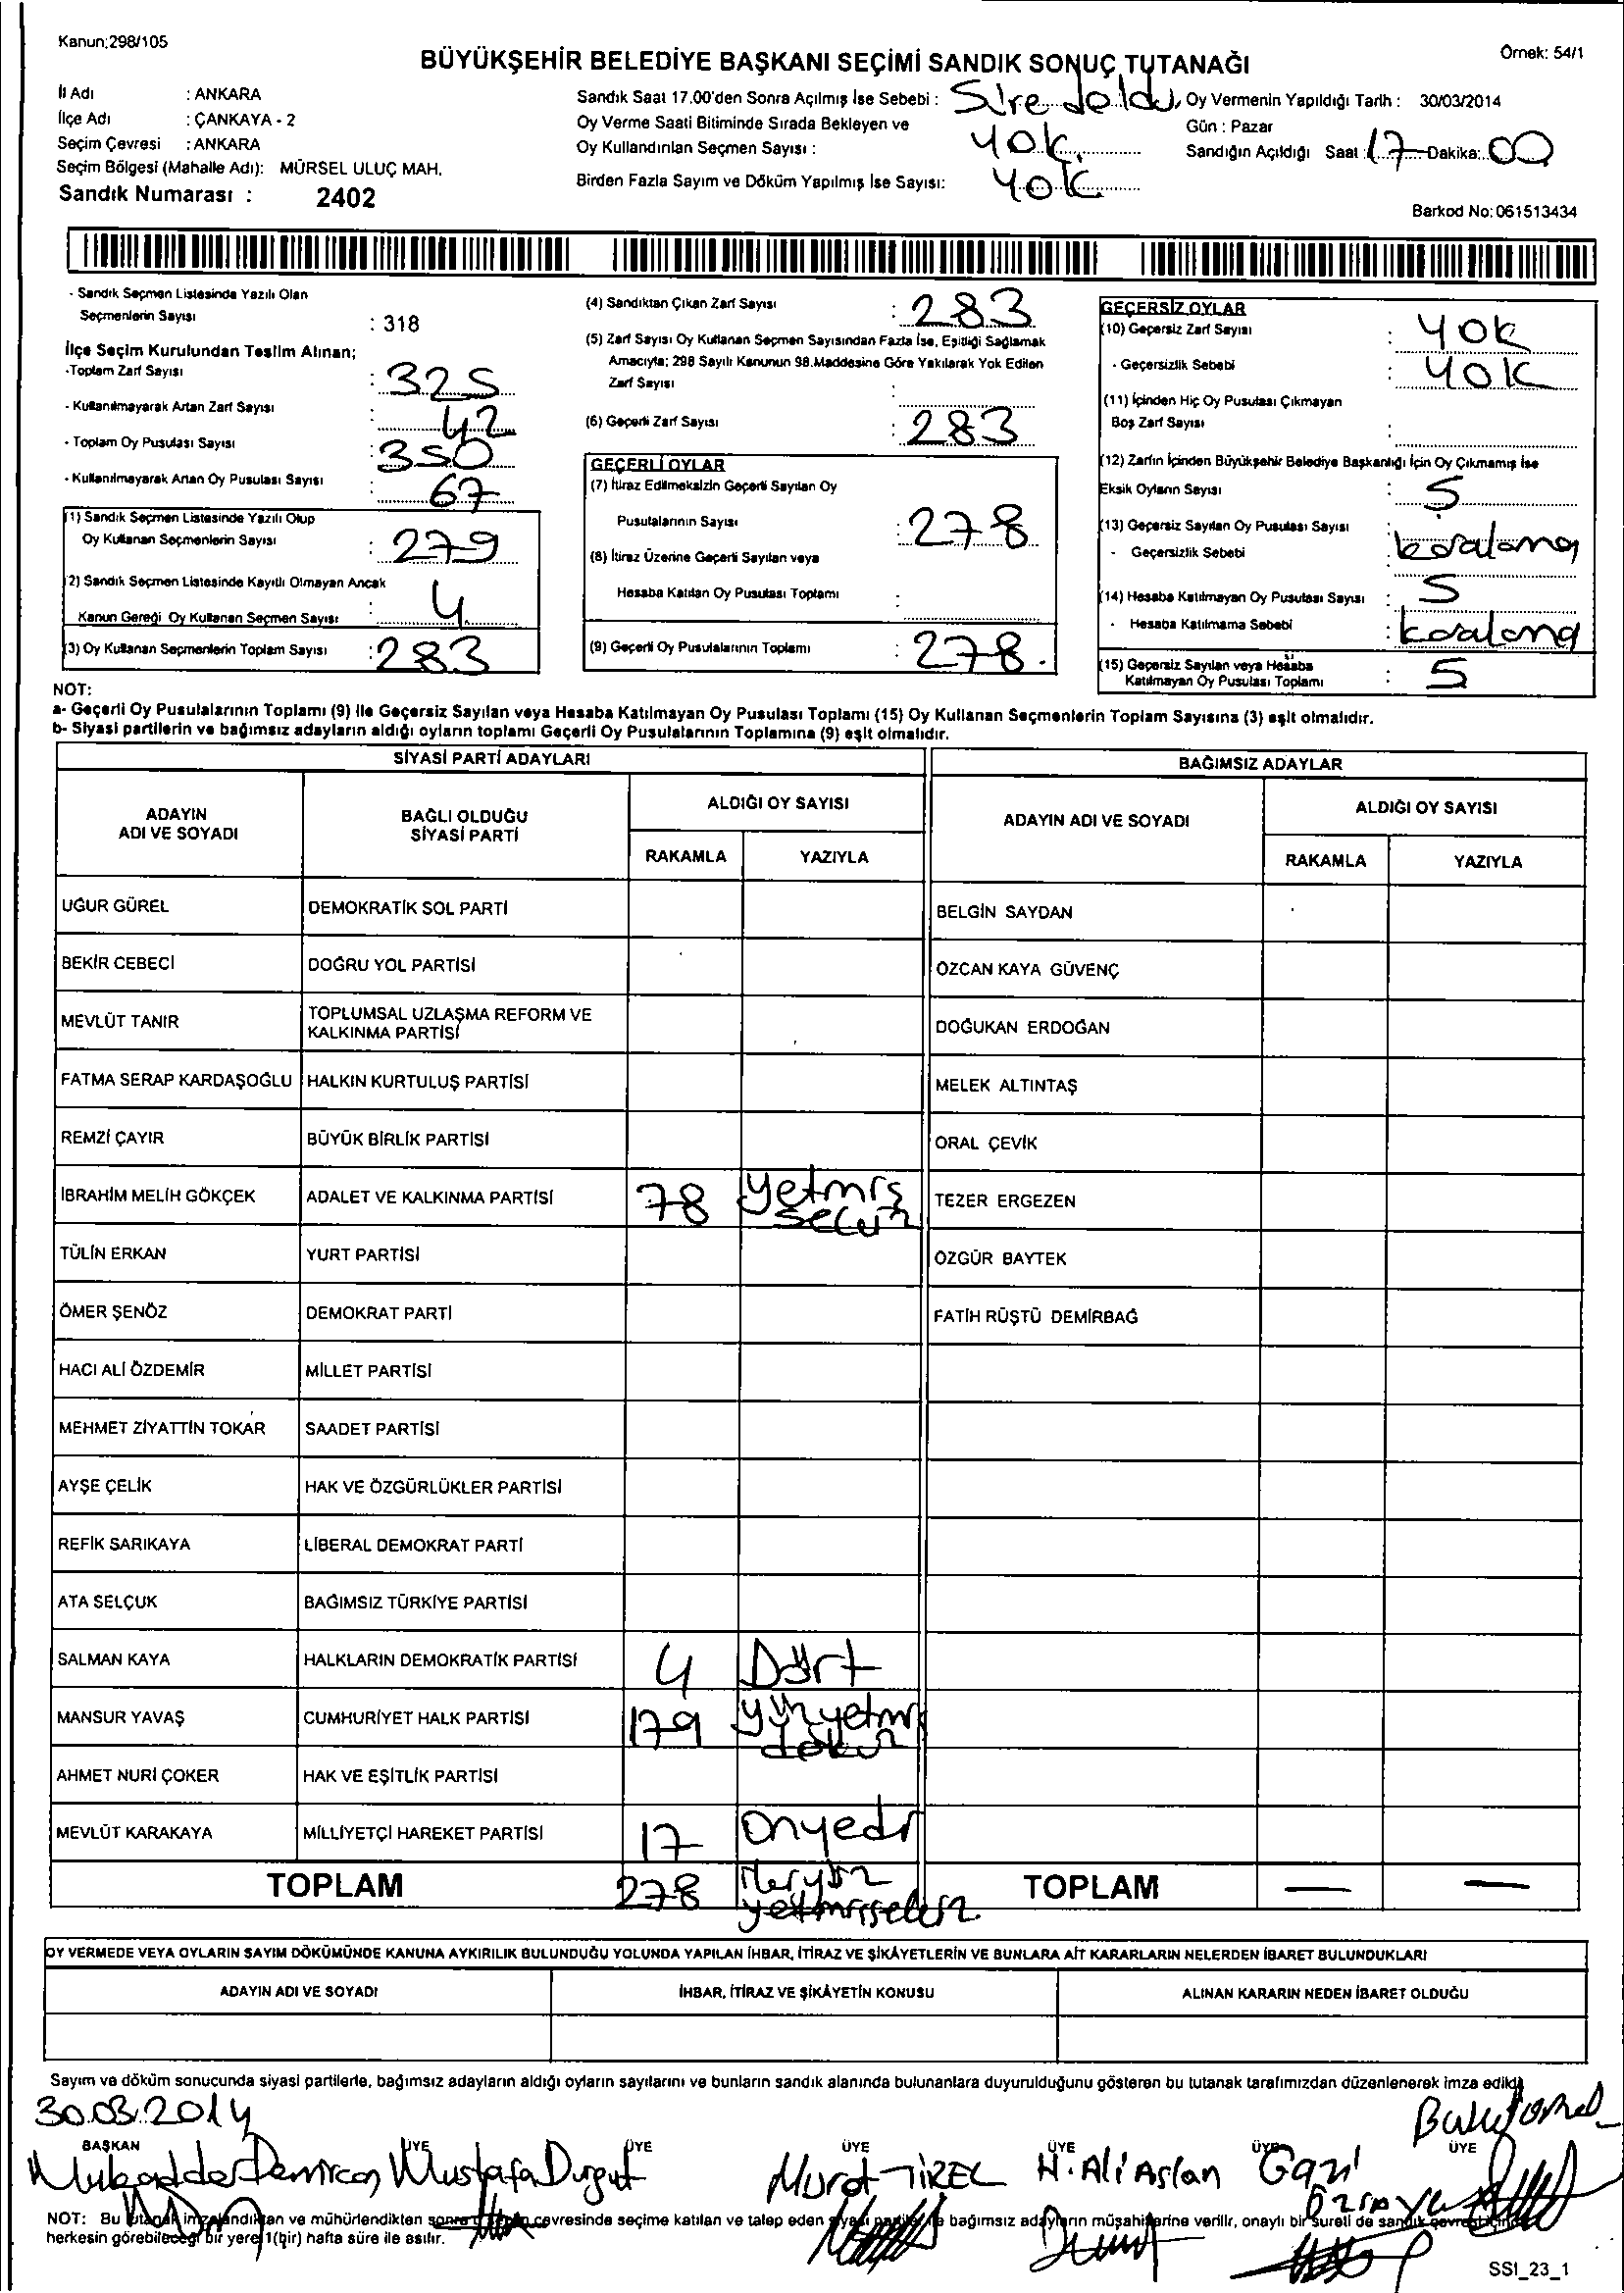 Kanun;298/105
Örnek: 54/1
BÜYÜKŞEHİR BELEDİYE BAŞKANI SEÇİMİ SANDIK SONUÇ TUTANAĞI
İl Adı : ANKARA
İlçe Adı : ÇANKAYA - 2
Seçim Çevresi : ANKARA
Seçim Bölgesi (Mahalle Adı): MÜRSEL ULUÇ MAH.
Sandık Numarası : 2402
Sandık Saat 17.00'den Sonra Açılmış İse Sebebi : Süre doldu
Oy Verme Saati Bitiminde Sırada Bekleyen ve
Oy Kullandırılan Seçmen Sayısı : Yok
Birden Fazla Sayım ve Döküm Yapılmış İse Sayısı: Yok
Oy Vermenin Yapıldığı Tarih : 30/03/2014
Gün : Pazar
Sandığın Açıldığı Saat : 17 Dakika: 00
Barkod No: 061513434
- Sandık Seçmen Listesinde Yazılı Olan
Seçmenlerin Sayısı : 318
İlçe Seçim Kurulundan Teslim Alınan;
-Toplam Zarf Sayısı : 325
- Kullanılmayarak Artan Zarf Sayısı : 42
- Toplam Oy Pusulası Sayısı : 350
- Kullanılmayarak Artan Oy Pusulası Sayısı : 67
(1) Sandık Seçmen Listesinde Yazılı Olup
Oy Kullanan Seçmenlerin Sayısı : 279
(2) Sandık Seçmen Listesinde Kayıtlı Olmayan Ancak
Kanun Gereği Oy Kullanan Seçmen Sayısı : 4
(3) Oy Kullanan Seçmenlerin Toplam Sayısı : 283
(4) Sandıktan Çıkan Zarf Sayısı : 283
(5) Zarf Sayısı Oy Kullanan Seçmen Sayısından Fazla İse, Eşitliği Sağlamak
Amacıyla; 298 Sayılı Kanunun 98.Maddesine Göre Yakılarak Yok Edilen
Zarf Sayısı :
(6) Geçerli Zarf Sayısı : 283
GEÇERLİ OYLAR
(7) İtiraz Edilmeksizin Geçerli Sayılan Oy
Pusulalarının Sayısı : 278
(8) İtiraz Üzerine Geçerli Sayılan veya
Hesaba Katılan Oy Pusulası Toplamı :
(9) Geçerli Oy Pusulalarının Toplamı : 278
GEÇERSİZ OYLAR
(10) Geçersiz Zarf Sayısı : Yok
- Geçersizlik Sebebi : Yok
(11) İçinden Hiç Oy Pusulası Çıkmayan
Boş Zarf Sayısı :
(12) Zarfın İçinden Büyükşehir Belediye Başkanlığı İçin Oy Çıkmamış İse
Eksik Oyların Sayısı : 5
(13) Geçersiz Sayılan Oy Pusulası Sayısı :
- Geçersizlik Sebebi : karalama
(14) Hesaba Katılmayan Oy Pusulası Sayısı : 5
- Hesaba Katılmama Sebebi : karalama
(15) Geçersiz Sayılan veya Hesaba
Katılmayan Oy Pusulası Toplamı : 5
NOT:
a- Geçerli Oy Pusulalarının Toplamı (9) ile Geçersiz Sayılan veya Hesaba Katılmayan Oy Pusulası Toplamı (15) Oy Kullanan Seçmenlerin Toplam Sayısına (3) eşit olmalıdır.
b- Siyasi partilerin ve bağımsız adayların aldığı oyların toplamı Geçerli Oy Pusulalarının Toplamına (9) eşit olmalıdır.
SİYASİ PARTİ ADAYLARI
BAĞIMSIZ ADAYLAR
ADAYIN ADI VE SOYADI
BAĞLI OLDUĞU SİYASİ PARTİ
ALDIĞI OY SAYISI
RAKAMLA YAZIYLA
ADAYIN ADI VE SOYADI
ALDIĞI OY SAYISI
RAKAMLA YAZIYLA
UĞUR GÜREL DEMOKRATİK SOL PARTİ BELGİN SAYDAN
BEKİR CEBECİ DOĞRU YOL PARTİSİ ÖZCAN KAYA GÜVENÇ
MEVLÜT TANIR TOPLUMSAL UZLAŞMA REFORM VE KALKINMA PARTİSİ DOĞUKAN ERDOĞAN
FATMA SERAP KARDAŞOĞLU HALKIN KURTULUŞ PARTİSİ MELEK ALTINTAŞ
REMZİ ÇAYIR BÜYÜK BİRLİK PARTİSİ ORAL ÇEVİK
İBRAHİM MELİH GÖKÇEK ADALET VE KALKINMA PARTİSİ 78 Yetmiş sekiz TEZER ERGEZEN
TÜLİN ERKAN YURT PARTİSİ ÖZGÜR BAYTEK
ÖMER ŞENÖZ DEMOKRAT PARTİ FATİH RÜŞTÜ DEMİRBAĞ
HACI ALİ ÖZDEMİR MİLLET PARTİSİ
MEHMET ZİYATTİN TOKAR SAADET PARTİSİ
AYŞE ÇELİK HAK VE ÖZGÜRLÜKLER PARTİSİ
REFİK SARIKAYA LİBERAL DEMOKRAT PARTİ
ATA SELÇUK BAĞIMSIZ TÜRKİYE PARTİSİ
SALMAN KAYA HALKLARIN DEMOKRATİK PARTİSİ 4 Dört
MANSUR YAVAŞ CUMHURİYET HALK PARTİSİ 179 yüzyetmiş dokuz
AHMET NURİ ÇOKER HAK VE EŞİTLİK PARTİSİ
MEVLÜT KARAKAYA MİLLİYETÇİ HAREKET PARTİSİ 17 Onyedi
TOPLAM 278 İkiyüz yetmişsekiz TOPLAM — —
OY VERMEDE VEYA OYLARIN SAYIM DÖKÜMÜNDE KANUNA AYKIRILIK BULUNDUĞU YOLUNDA YAPILAN İHBAR, İTİRAZ VE ŞİKÂYETLERİN VE BUNLARA AİT KARARLARIN NELERDEN İBARET BULUNDUKLARI
ADAYIN ADI VE SOYADI İHBAR, İTİRAZ VE ŞİKÂYETİN KONUSU ALINAN KARARIN NEDEN İBARET OLDUĞU
Sayım ve döküm sonucunda siyasi partilerle, bağımsız adayların aldığı oyların sayılarını ve bunların sandık alanında bulunanlara duyurulduğunu gösteren bu tutanak tarafımızdan düzenlenerek imza edildi
30.03.2014
BAŞKAN ÜYE ÜYE ÜYE ÜYE ÜYE ÜYE
Mukadder Demircan Mustafa Durgut Murat TİREL H. Ali Aslan Gazi
NOT: Bu tutanak imzalandıktan ve mühürlendikten sonra çevresinde seçime katılan ve talep eden siyasi partiler ile bağımsız adayların müşahitlerine verilir, onaylı bir sureti de sandık çevresi için
herkesin görebileceği bir yere 1(bir) hafta süre ile asılır.
SSI_23_1